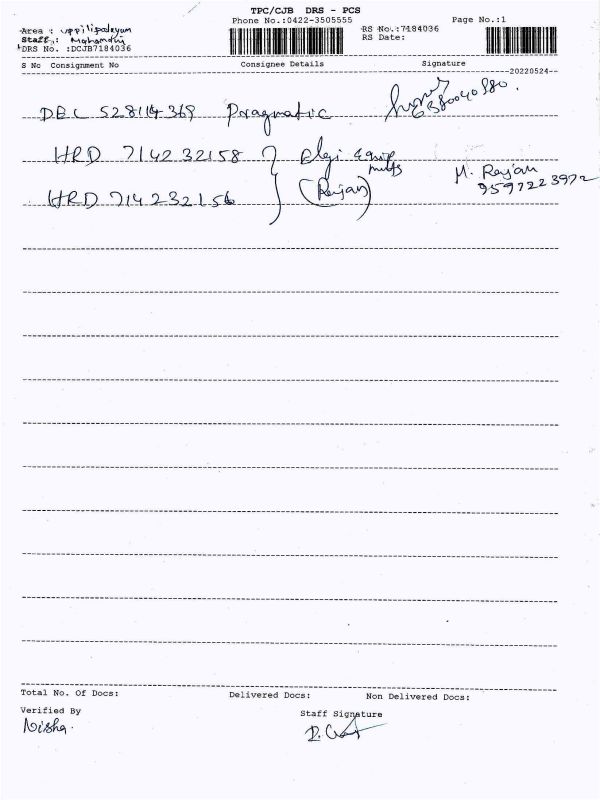 TPC/CJB DRS - PCS
Phone No.:0422-3505555
Page No.:1
Area : Uppilipalayam
Staff :
DRS No. :DCJB7184036
RS No.:7184036
RS Date:
S No Consignment No Consignee Details Signature
20220524
DEL 528114369 Pragmatic 6380040580.
HRD 714232158 Elgi Equip
ments
M. Rajan
9597223972
HRD 714232156 (Rajan)
Total No. Of Docs: Delivered Docs: Non Delivered Docs:
Verified By Staff Signature
Nisha.